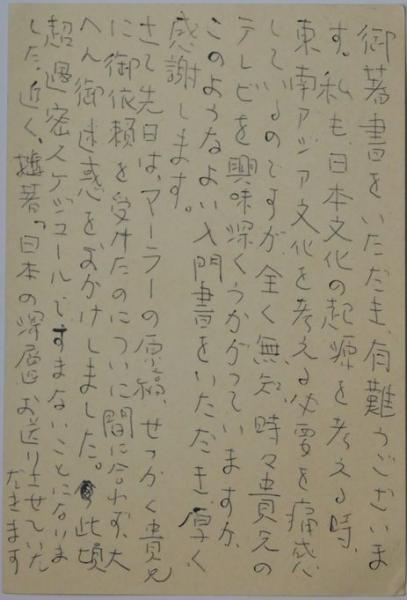 御著書をいただき、有難うございま
す。私も、日本文化の起源を考える時、
東南アジア文化を考える必要を痛感
しているのですが、全く無知、時々貴兄の
テレビを興味深くうかがっていますが、
このようなよい入門書をいただき、厚く
感謝します。
さて先日は、マーラーの原稿、せっかく貴兄
に御依頼を受けたのについに間に合わず、大
へん御迷惑をおかけしました。此頃
超過密スケジュールですまないことになりま
した。近く、拙著「日本の深層」お送りさせていた
だきます